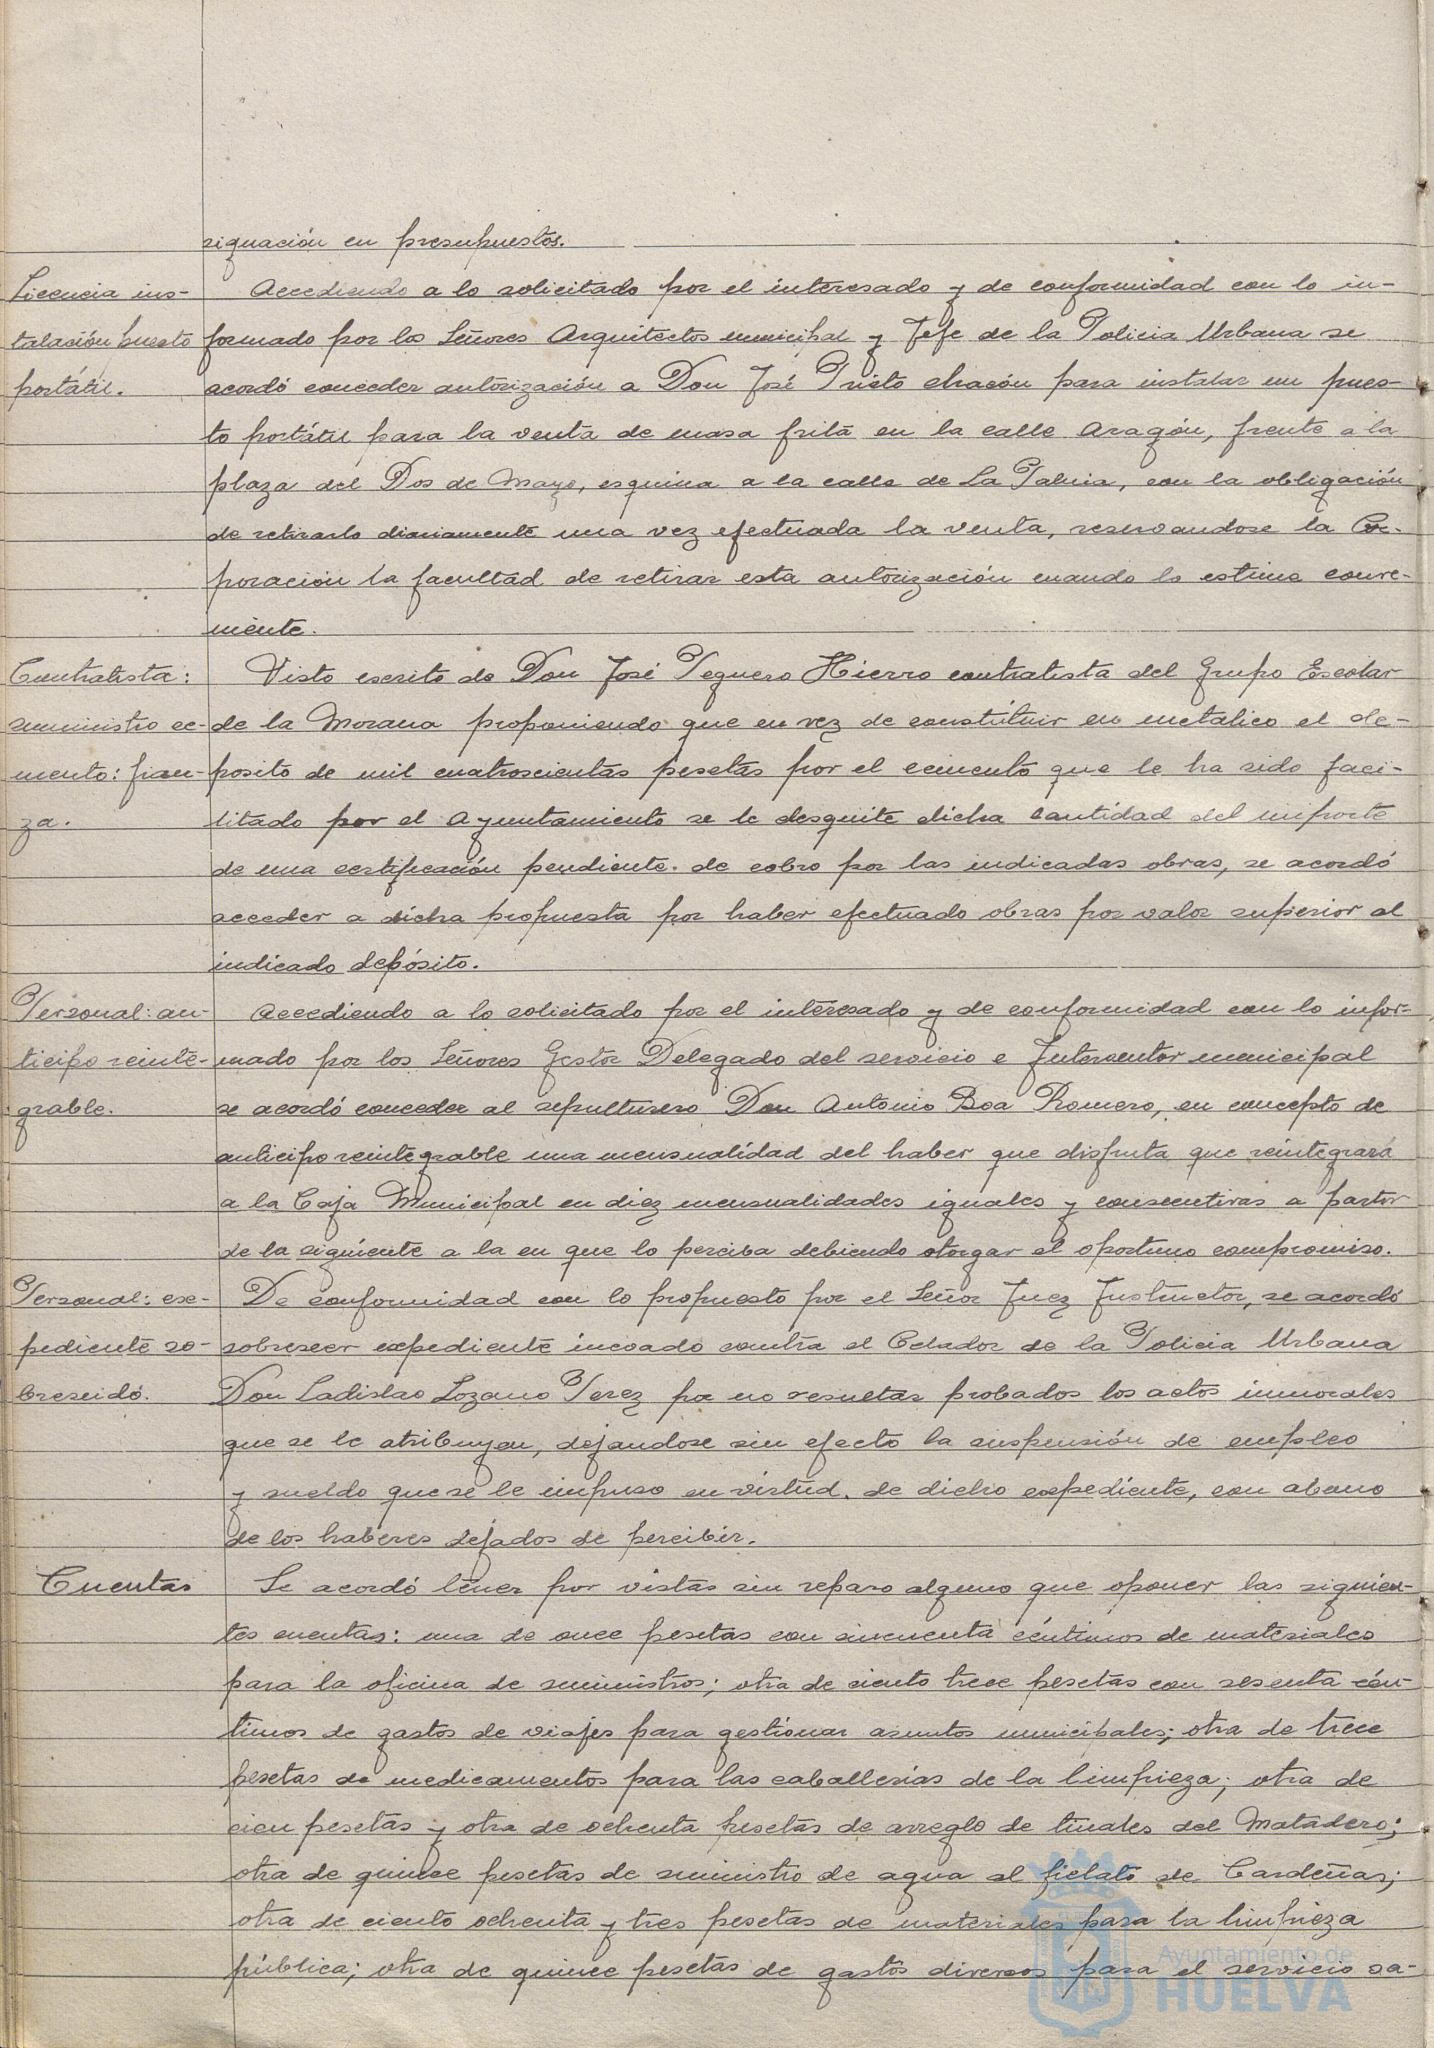 signación en presupuestos.
Licencia ins-
talación puesto
portátil.
Accediendo a lo solicitado por el interesado y de conformidad con lo in-
formado por los Señores Arquitectos municipal y Jefe de la Policia Urbana se
acordó conceder autorización a Don José Prieto Chacón para instalar un pues-
to portátil para la venta de masa frita en la calle Aragón, frente a la
plaza del Dos de Mayo, esquina a la calle de La Palma, con la obligación
de retirarlo diariamente una vez efectuada la venta, reservandose la Cor-
poración la facultad de retirar esta autorización cuando lo estime conve-
niente.
Contratista:
suministro ce-
mento: fian-
za.
Visto escrito de Don José Peguero Hierro contratista del Grupo Escolar
de la Morana proponiendo que en vez de constituir en metalico el de-
posito de mil cuatroscientas pesetas por el cemento que le ha sido faci-
litado por el Ayuntamiento se le desquite dicha cantidad del importe
de una certificación pendiente de cobro por las indicadas obras, se acordó
acceder a dicha propuesta por haber efectuado obras por valor superior al
indicado depósito.
Personal: an-
ticipo reinte-
grable.
Accediendo a lo solicitado por el interesado y de conformidad con lo infor-
mado por los Señores Gestor Delegado del servicio e Interventor municipal
se acordó conceder al sepulturero Don Antonio Boa Romero, en concepto de
anticipo reintegrable una mensualidad del haber que disfruta que reintegrará
a la Caja Municipal en diez mensualidades iguales y consecutivas a partir
de la siguiente a la en que lo perciba debiendo otorgar el oportuno compromiso.
Personal: ex-
pediente so-
breseido.
De conformidad con lo propuesto por el Señor Juez Instructor, se acordó
sobreseer expediente incoado contra el Celador de la Policia Urbana
Don Ladislao Lozano Perez por no resultar probados los actos inmorales
que se le atribuyen, dejandose sin efecto la suspensión de empleo
y sueldo que se le impuso en virtud de dicho expediente, con abono
de los haberes dejados de percibir.
Cuentas
Se acordó tener por vistas sin reparo alguno que oponer las siguien-
tes cuentas: una de once pesetas con cincuenta céntimos de materiales
para la oficina de suministros; otra de ciento trece pesetas con sesenta cén-
timos de gastos de viajes para gestionar asuntos municipales; otra de trece
pesetas de medicamentos para las caballerías de la limpieza; otra de
cien pesetas y otra de ochenta pesetas de arreglo de tinales del Matadero;
otra de quince pesetas de suministro de agua al fielato de Cardeñas;
otra de ciento ochenta y tres pesetas de materiales para la limpieza
pública; otra de quince pesetas de gastos diversos para el servicio sa-
Ayuntamiento de
HUELVA